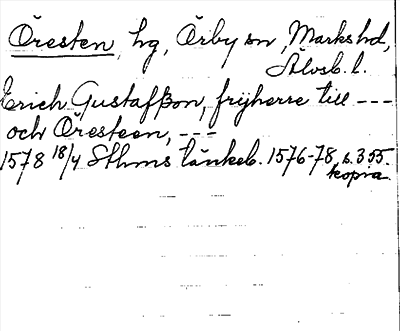 Öresten, hg, Örby sn, Markshd,
Älvsb. l.
Erich Gustafßon, frijherre till ---
och Öresteen, ---
1578 18/4 Sthms tänkeb. 1576-78, s. 355.
kopia.